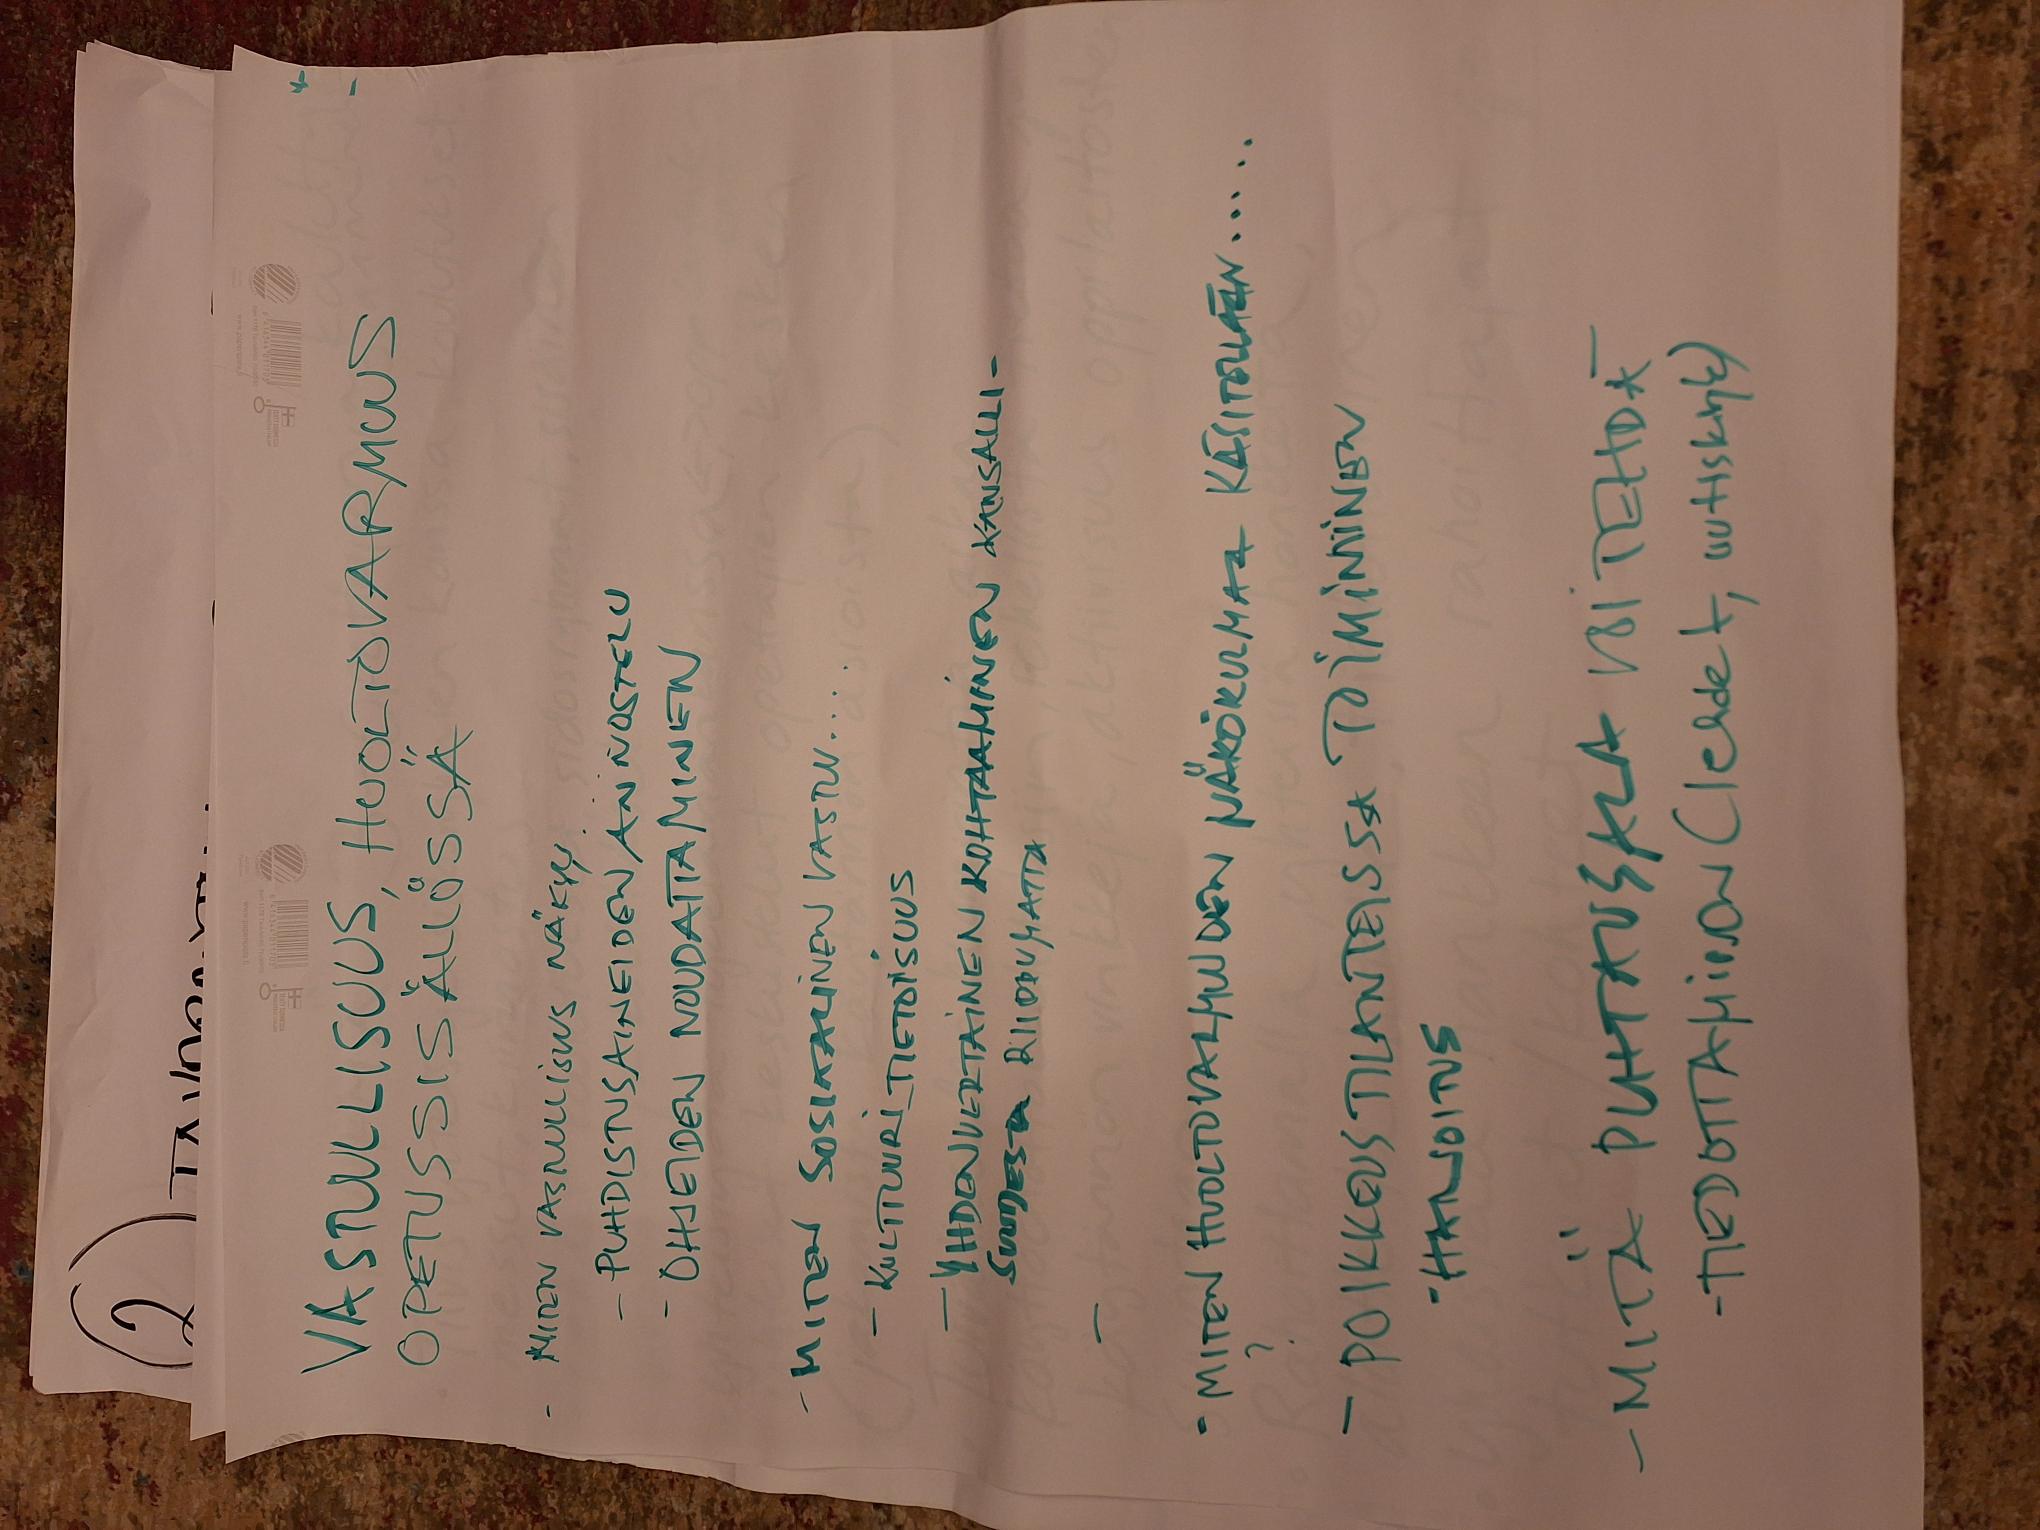 VASTUULLISUUS, HUOLTOVARMUUS
OPETUSSISÄLLÖSSÄ
+
-
- MITEN VASTUULLISUUS NÄKYY
- PUHDISTUSAINEIDEN ANNOSTELU
- OHJEIDEN NOUDATTAMINEN
- MITEN SOSIAALINEN VASTUU....
- KULTTUURI_TIETOISUUS
- YHDENVERTAINEN KOHTAAMINEN KANSALLI-
SUUDESTA RIIPPUMATTA
-
- MITEN HUOLTOVARMUUDEN NÄKÖKULMAA KÄSITELLÄÄN.....
?
- POIKKEUSTILANTEISSA TOIMIMINEN
- HARJOITUS
- MITÄ PUHTAUSALA VOI TEHDÄ -
- TIEDOTTAMINEN (lehdet, uutiskirje)
2